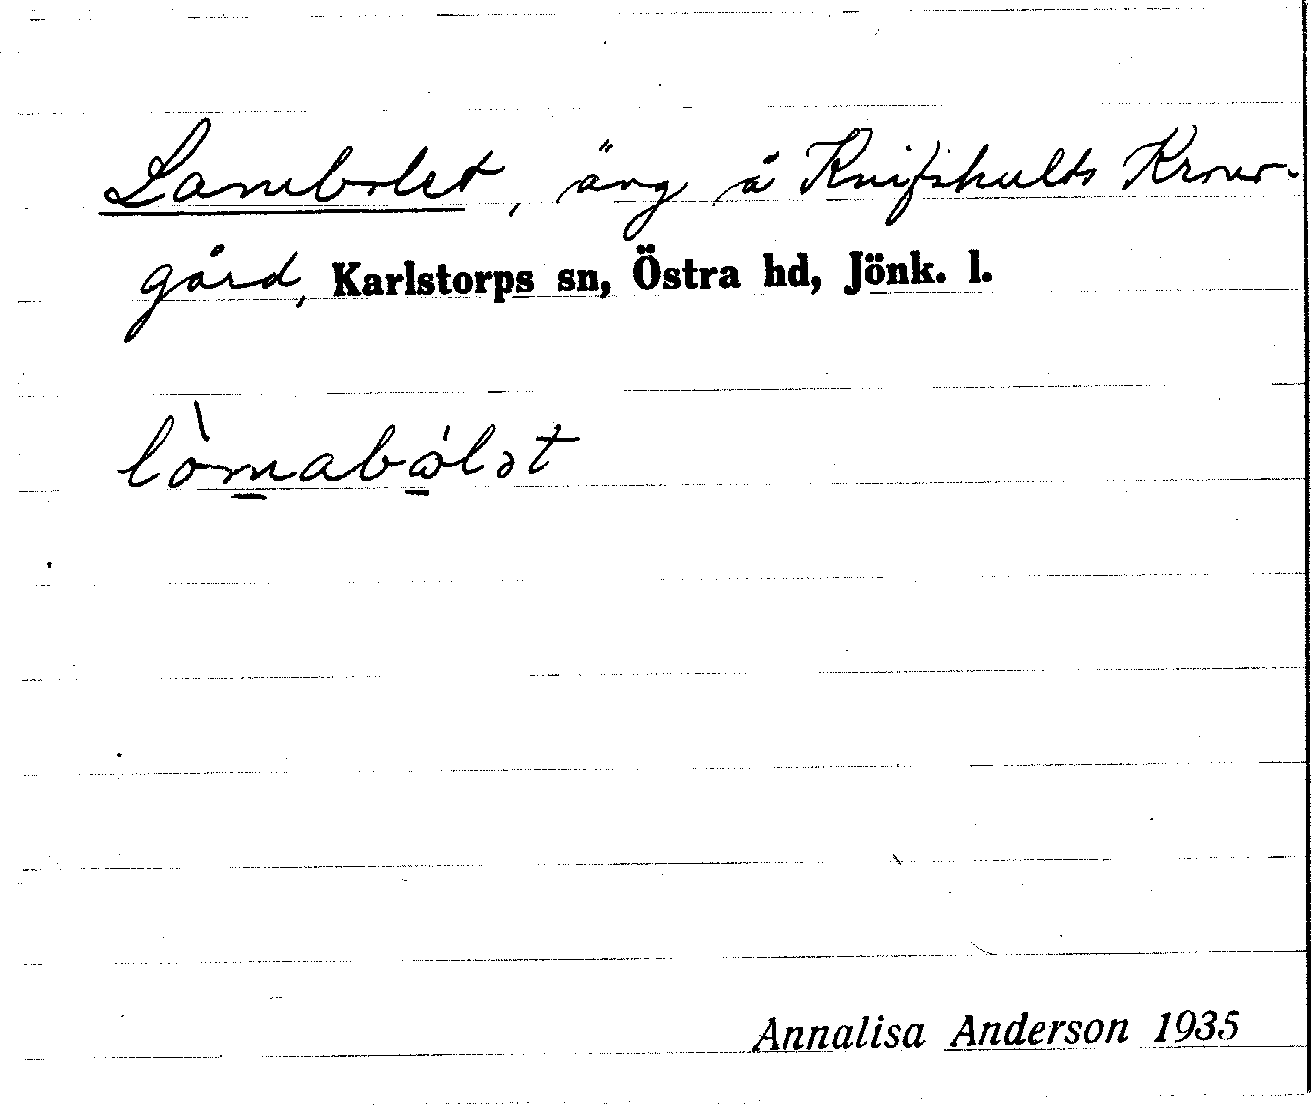 Lambolet, äng å Knifshults Krono-
gård, Karlstorps sn, Östra hd, Jönk. l.
lòmabώ̲lət
Annalisa Anderson 1935